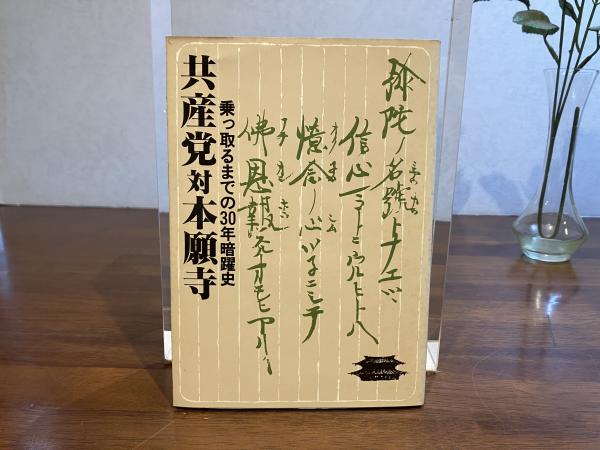 弥陀ノ名號トナエツヽ
信心マコトニウルヒトハ
憶念ノ心ツネニシテ
佛恩報スルオモヒアリ
乗っ取るまでの30年暗躍史
共産党対本願寺